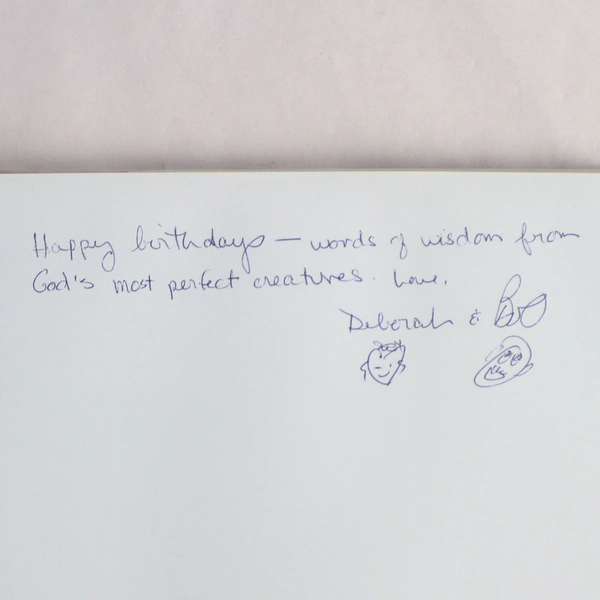 Happy birthdays — words of wisdom from
God's most perfect creatures. Love,
Deborah &